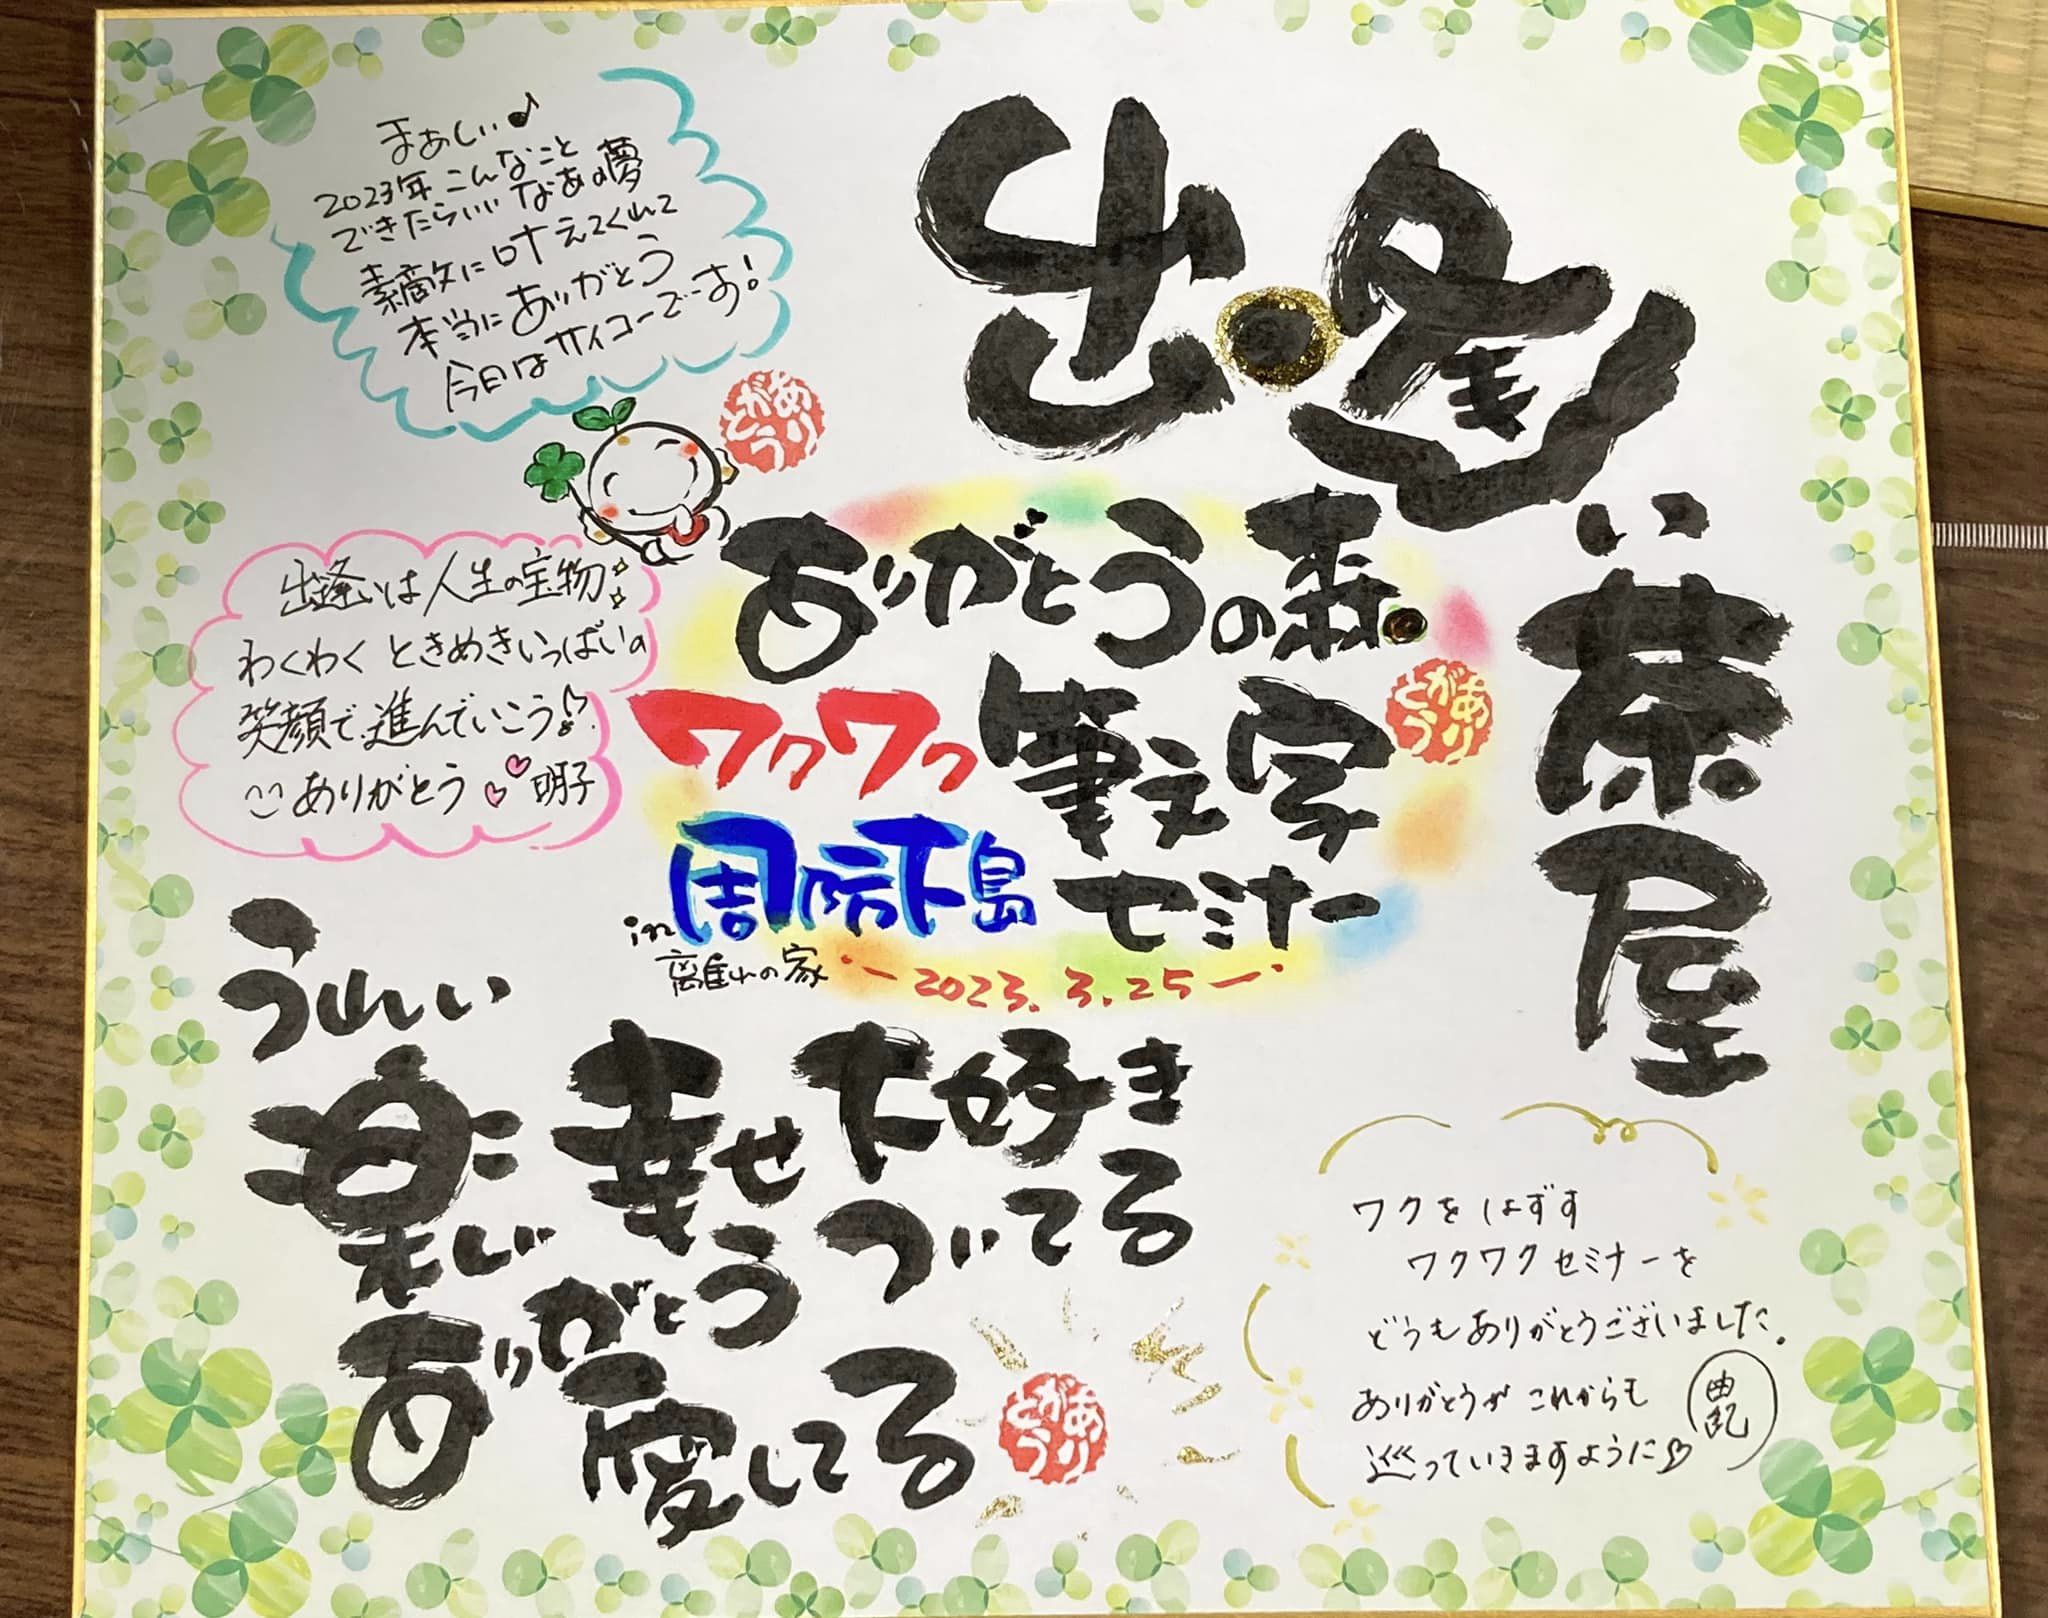 出逢い茶屋
まぁしぃ♪
2023年こんなこと
できたらいいなあの夢
素敵に叶えてくれて
本当にありがとう
今日はサイコーでーす!
ありがとう
ありがとうの森
ワクワク筆文字
セミナー
in周防大島
離れの家
~2023.3.25~
ありがとう
出逢いは人生の宝物
わくわくときめきいっぱいの
笑顔で進んでいこう♪
ありがとう 明子
うれしい
楽しい
幸せ
大好き
ありがとう
ついてる
愛してる
ありがとう
ワクをはずす
ワクワクセミナーを
どうもありがとうございました。
ありがとうが これからも
巡っていきますように♡
由記